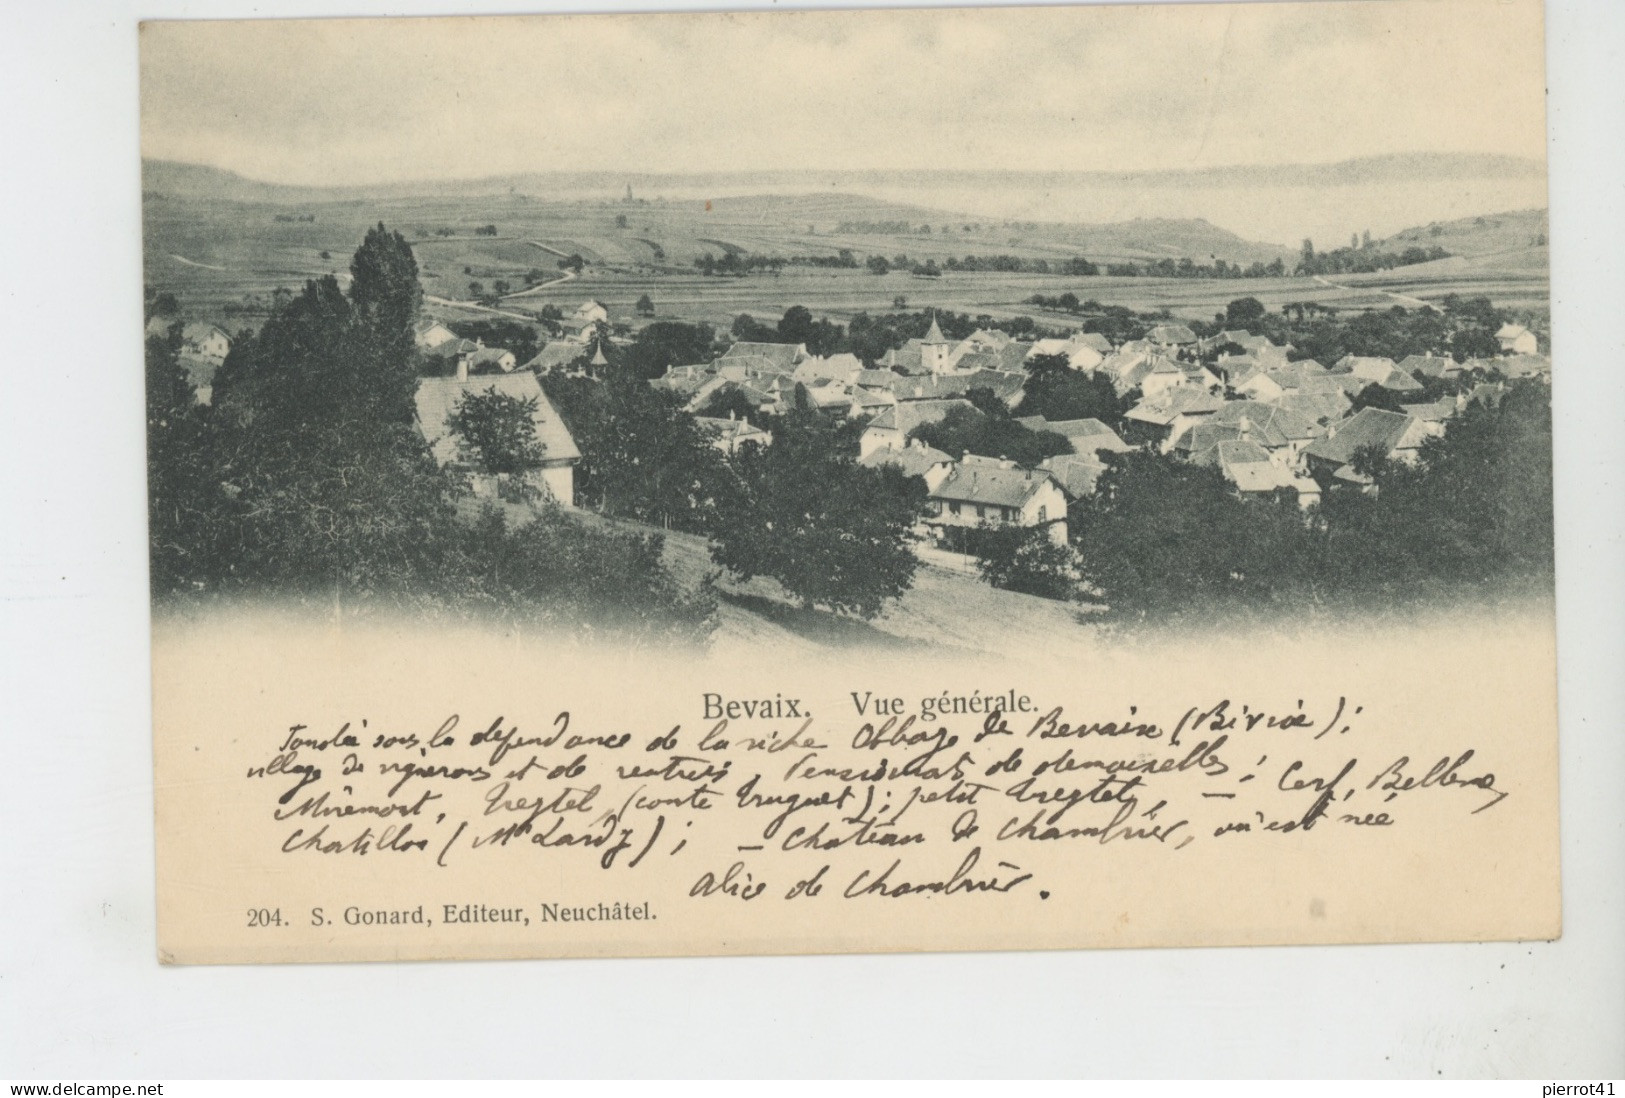 Bevaix. Vue générale.
sous la dépendance de la riche Abbaye de Bevaix (
village de vignerons et de rentiers, Pensionnats de demoiselles; Cerf, Bellevue,
Mirémont, Treytel, (comte Truguet); petit Treytel, —
Chatillon (Mr Lardy); — Château de Chambrier, où est née
Alice de Chambrier.
204. S. Gonard, Editeur, Neuchâtel.
www.delcampe.net
pierrot41